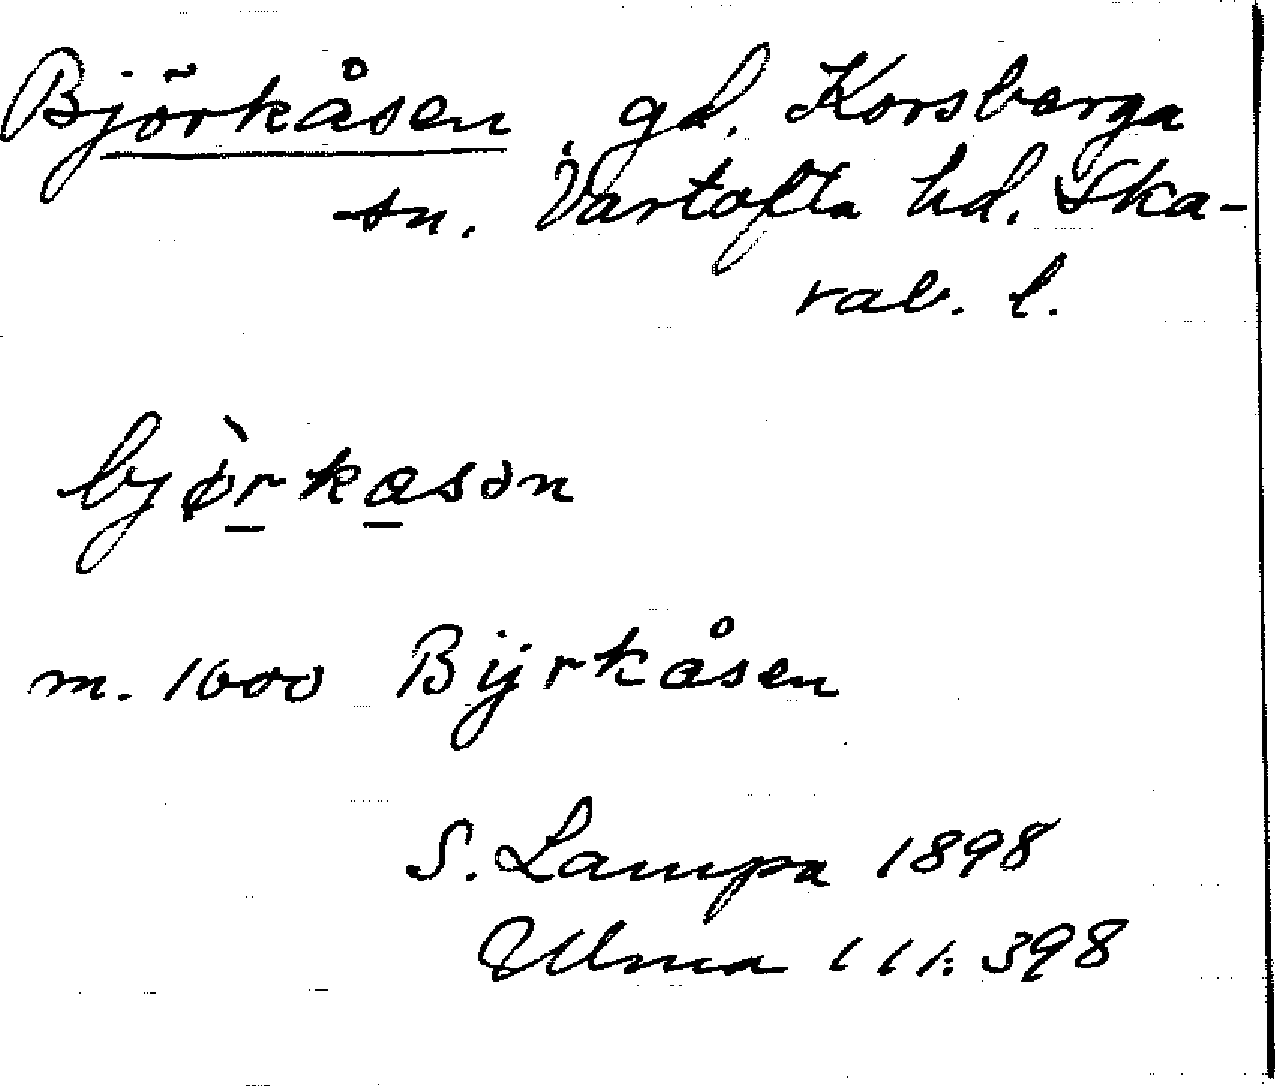 Björkåsen gd. Korsberga
sn. Vartofta hd. Ska-
rab. l.
bjø̀rkasən
m. 1600 Bijrkåsen
S. Lampa 1898
Ulma 111:398